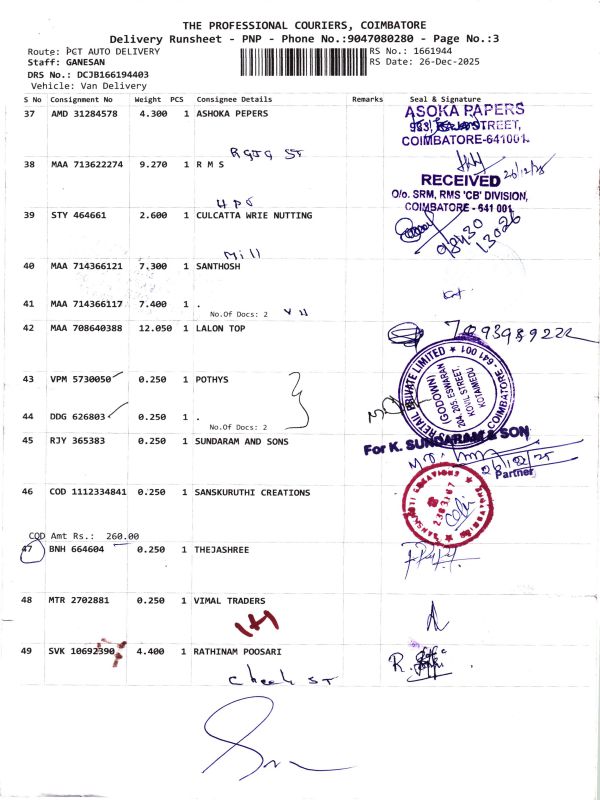 THE PROFESSIONAL COURIERS, COIMBATORE
Delivery Runsheet - PNP - Phone No.:9047080280 - Page No.:3
Route: PCT AUTO DELIVERY
RS No.: 1661944
Staff: GANESAN
RS Date: 26-Dec-2025
DRS No.: DCJB166194403
Vehicle: Van Delivery
S No Consignment No Weight PCS Consignee Details Remarks Seal & Signature
37 AMD 31284578 4.300 1 ASHOKA PEPERS
ASOKA PAPERS
STREET,
COIMBATORE-641001.
38 MAA 713622274 9.270 1 R M S
26/12/25
RECEIVED
O/o. SRM, RMS 'CB' DIVISION,
COIMBATORE - 641 001
39 STY 464661 2.600 1 CULCATTA WRIE NUTTING
98430
13026
Mill
40 MAA 714366121 7.300 1 SANTHOSH
41 MAA 714366117 7.400 1 .
No.Of Docs: 2
42 MAA 708640388 12.050 1 LALON TOP
RETAIL PRIVATE LIMITED ★ COIMBATORE - 641 001 ★
(GODOWN)
204, 205, ESWARAN
KOVIL STREET,
KOTAIMEDU
43 VPM 5730050 0.250 1 POTHYS
44 DDG 626803 0.250 1 .
No.Of Docs: 2
45 RJY 365383 0.250 1 SUNDARAM AND SONS
For K. SUNDARAM & SON
26/12/25
Partner
46 COD 1112334841 0.250 1 SANSKURUTHI CREATIONS
COD Amt Rs.: 260.00
47 BNH 664604 0.250 1 THEJASHREE
48 MTR 2702881 0.250 1 VIMAL TRADERS
49 SVK 10692390 4.400 1 RATHINAM POOSARI
R.